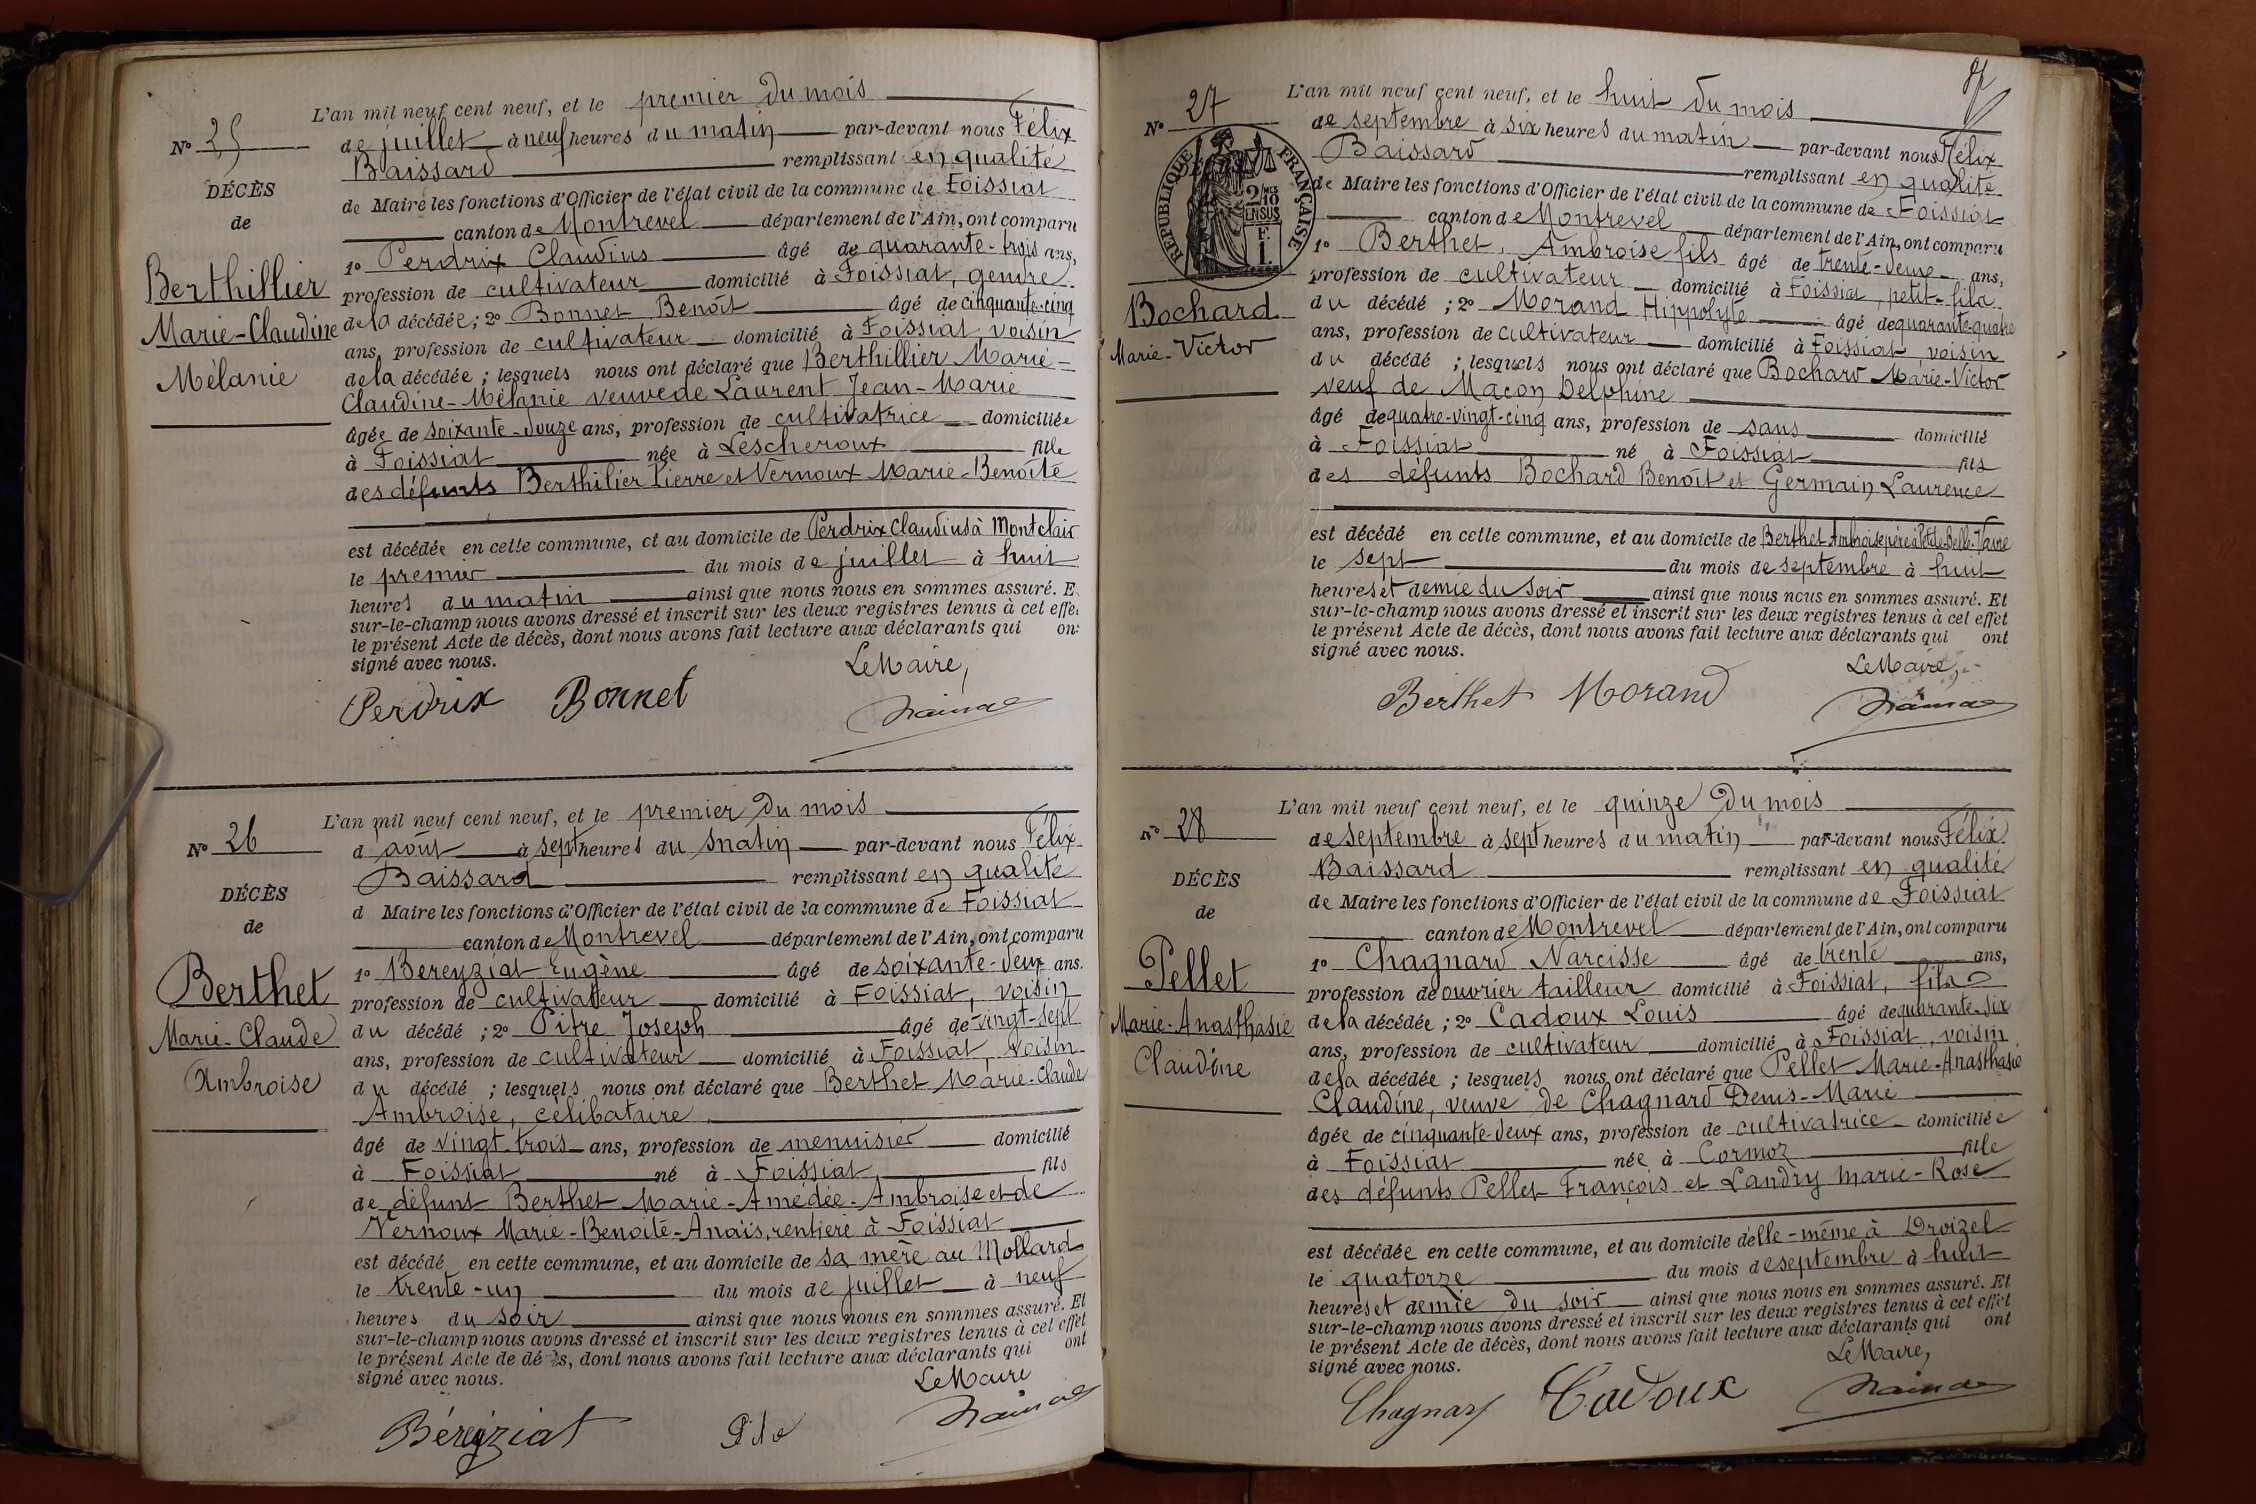 L'an mil neuf cent neuf, et le premier du mois
N° 25
de juillet à neuf heures du matin par-devant nous Félix
Baissard remplissant en qualité
DÉCÈS
de Maire les fonctions d'Officier de l'état civil de la commune de Foissiat
de
canton de Montrevel département de l'Ain, ont comparu
1° Perdrix Claudius âgé de quarante-trois ans,
Berthillier
profession de cultivateur domicilié à Foissiat, gendre
Marie-Claudine
de la décédée ; 2° Bonnet Benoît âgé de cinquante-cinq
ans, profession de cultivateur domicilié à Foissiat, voisin
Mélanie
de la décédée ; lesquels nous ont déclaré que Berthillier Marie-
Claudine-Mélanie veuve de Laurent Jean-Marie
âgée de soixante-douze ans, profession de cultivatrice domiciliée
à Foissiat née à Lescheroux fille
des défunts Berthilier Pierre et Vernoux Marie-Benoîte
est décédée en cette commune, et au domicile de Perdrix Claudius à Montclair
le premier du mois de juillet à huit
heures du matin ainsi que nous nous en sommes assuré. E
sur-le-champ nous avons dressé et inscrit sur les deux registres tenus à cet effe
le présent Acte de décès, dont nous avons fait lecture aux déclarants qui on
signé avec nous.
Le Maire,
Perdrix Bonnet
L'an mil neuf cent neuf, et le premier du mois
N° 26
d'août à sept heures du matin par-devant nous Félix
Baissard remplissant en qualité
DÉCÈS
d Maire les fonctions d'Officier de l'état civil de la commune de Foissiat
de
canton de Montrevel département de l'Ain, ont comparu
1° Bereyziat Eugène âgé de soixante-deux ans.
Berthet
profession de cultivateur domicilié à Foissiat, voisin
Marie-Claude
du décédé ; 2° Pitre Joseph âgé de vingt-sept
ans, profession de cultivateur domicilié à Foissiat, voisin
Ambroise
du décédé ; lesquels nous ont déclaré que Berthet Marie-Claude
Ambroise, célibataire
âgé de vingt-trois ans, profession de menuisier domicilié
à Foissiat né à Foissiat fils
de défunt Berthet Marie-Amédée-Ambroise et de
Vernoux Marie-Benoîte-Anaïs, rentière à Foissiat
est décédé en cette commune, et au domicile de sa mère au Mollard
le trente-un du mois de juillet à neuf
heures du soir ainsi que nous nous en sommes assuré. Et
sur-le-champ nous avons dressé et inscrit sur les deux registres tenus à cet effet
le présent Acte de décès, dont nous avons fait lecture aux déclarants qui ont
signé avec nous.
Le Maire
Béreyziat
87
L'an mil neuf cent neuf, et le huit du mois
N° 27
de septembre à six heures du matin par-devant nous Félix
Baissard remplissant en qualité
RÉPUBLIQUE FRANÇAISE
2/10 EN SUS
F. 1.
de Maire les fonctions d'Officier de l'état civil de la commune de Foissiat
canton de Montrevel département de l'Ain, ont comparu
1° Berthet, Ambroise fils âgé de trente-deux ans,
profession de cultivateur domicilié à Foissiat, petit-fils
Bochard
du décédé ; 2° Morand Hippolyte âgé de quarante-quatre
Marie-Victor
ans, profession de cultivateur domicilié à Foissiat, voisin
du décédé ; lesquels nous ont déclaré que Bochard Marie-Victor
veuf de Maçon Delphine
âgé de quatre-vingt-cinq ans, profession de sans domicilié
à Foissiat né à Foissiat fils
des défunts Bochard Benoît et Germain Laurence
est décédé en cette commune, et au domicile de Berthet Ambroise père
le sept du mois de septembre à huit
heures et demie du soir ainsi que nous nous en sommes assuré. Et
sur-le-champ nous avons dressé et inscrit sur les deux registres tenus à cet effet
le présent Acte de décès, dont nous avons fait lecture aux déclarants qui ont
signé avec nous.
Le Maire,
Berthet Morand
L'an mil neuf cent neuf, et le quinze du mois
N° 28
de septembre à sept heures du matin par-devant nous Félix
Baissard remplissant en qualité
DÉCÈS
de Maire les fonctions d'Officier de l'état civil de la commune de Foissiat
de
canton de Montrevel département de l'Ain, ont comparu
1° Chagnard Narcisse âgé de trente ans,
Pellet
profession de ouvrier tailleur domicilié à Foissiat, fils
Marie-Anasthasie
de la décédée ; 2° Cadoux Louis âgé de quarante-six
ans, profession de cultivateur domicilié à Foissiat, voisin
Claudine
de la décédée ; lesquels nous ont déclaré que Pellet Marie-Anasthasie
Claudine, veuve de Chagnard Denis-Marie
âgée de cinquante-deux ans, profession de cultivatrice domiciliée
à Foissiat née à Cormoz fille
des défunts Pellet François et Landry Marie-Rose
est décédée en cette commune, et au domicile d'elle-même à Droizel
le quatorze du mois de septembre à huit
heures et demie du soir ainsi que nous nous en sommes assuré. Et
sur-le-champ nous avons dressé et inscrit sur les deux registres tenus à cet effet
le présent Acte de décès, dont nous avons fait lecture aux déclarants qui ont
signé avec nous.
Le Maire,
Chagnard Cadoux